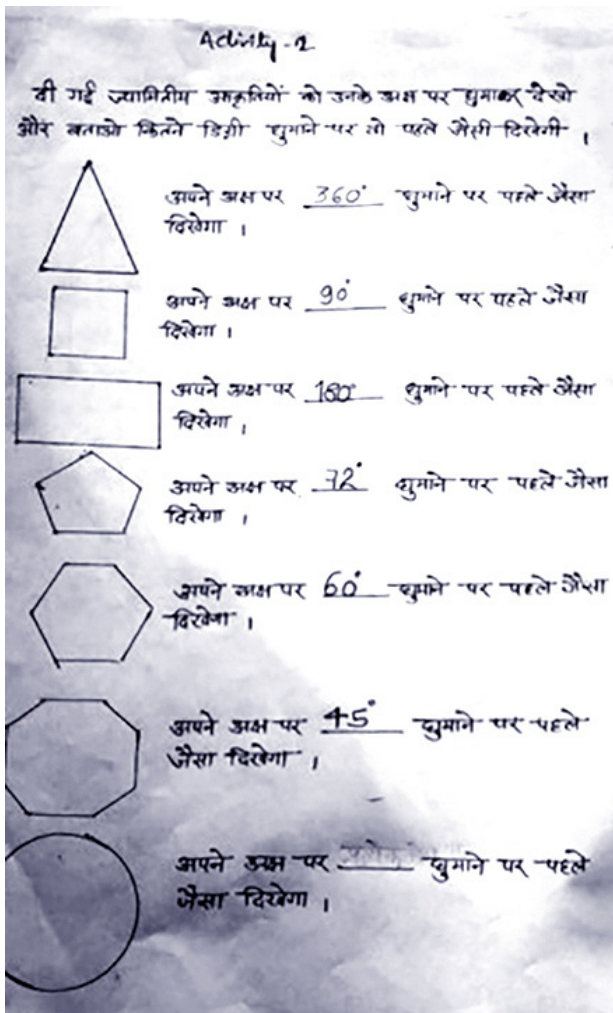 Activity-2
दी गई ज्यामितीय आकृतियों को उनके अक्ष पर घुमाकर देखो
और बताओ कितने डिग्री घुमाने पर वो पहले जैसी दिखेगी ।
अपने अक्ष पर 360° घुमाने पर पहले जैसा
दिखेगा ।
अपने अक्ष पर 90° घुमाने पर पहले जैसा
दिखेगा ।
अपने अक्ष पर 180° घुमाने पर पहले जैसा
दिखेगा ।
अपने अक्ष पर 72° घुमाने पर पहले जैसा
दिखेगा ।
अपने अक्ष पर 60° घुमाने पर पहले जैसा
दिखेगा ।
अपने अक्ष पर 45° घुमाने पर पहले
जैसा दिखेगा ।
अपने अक्ष पर घुमाने पर पहले
जैसा दिखेगा ।